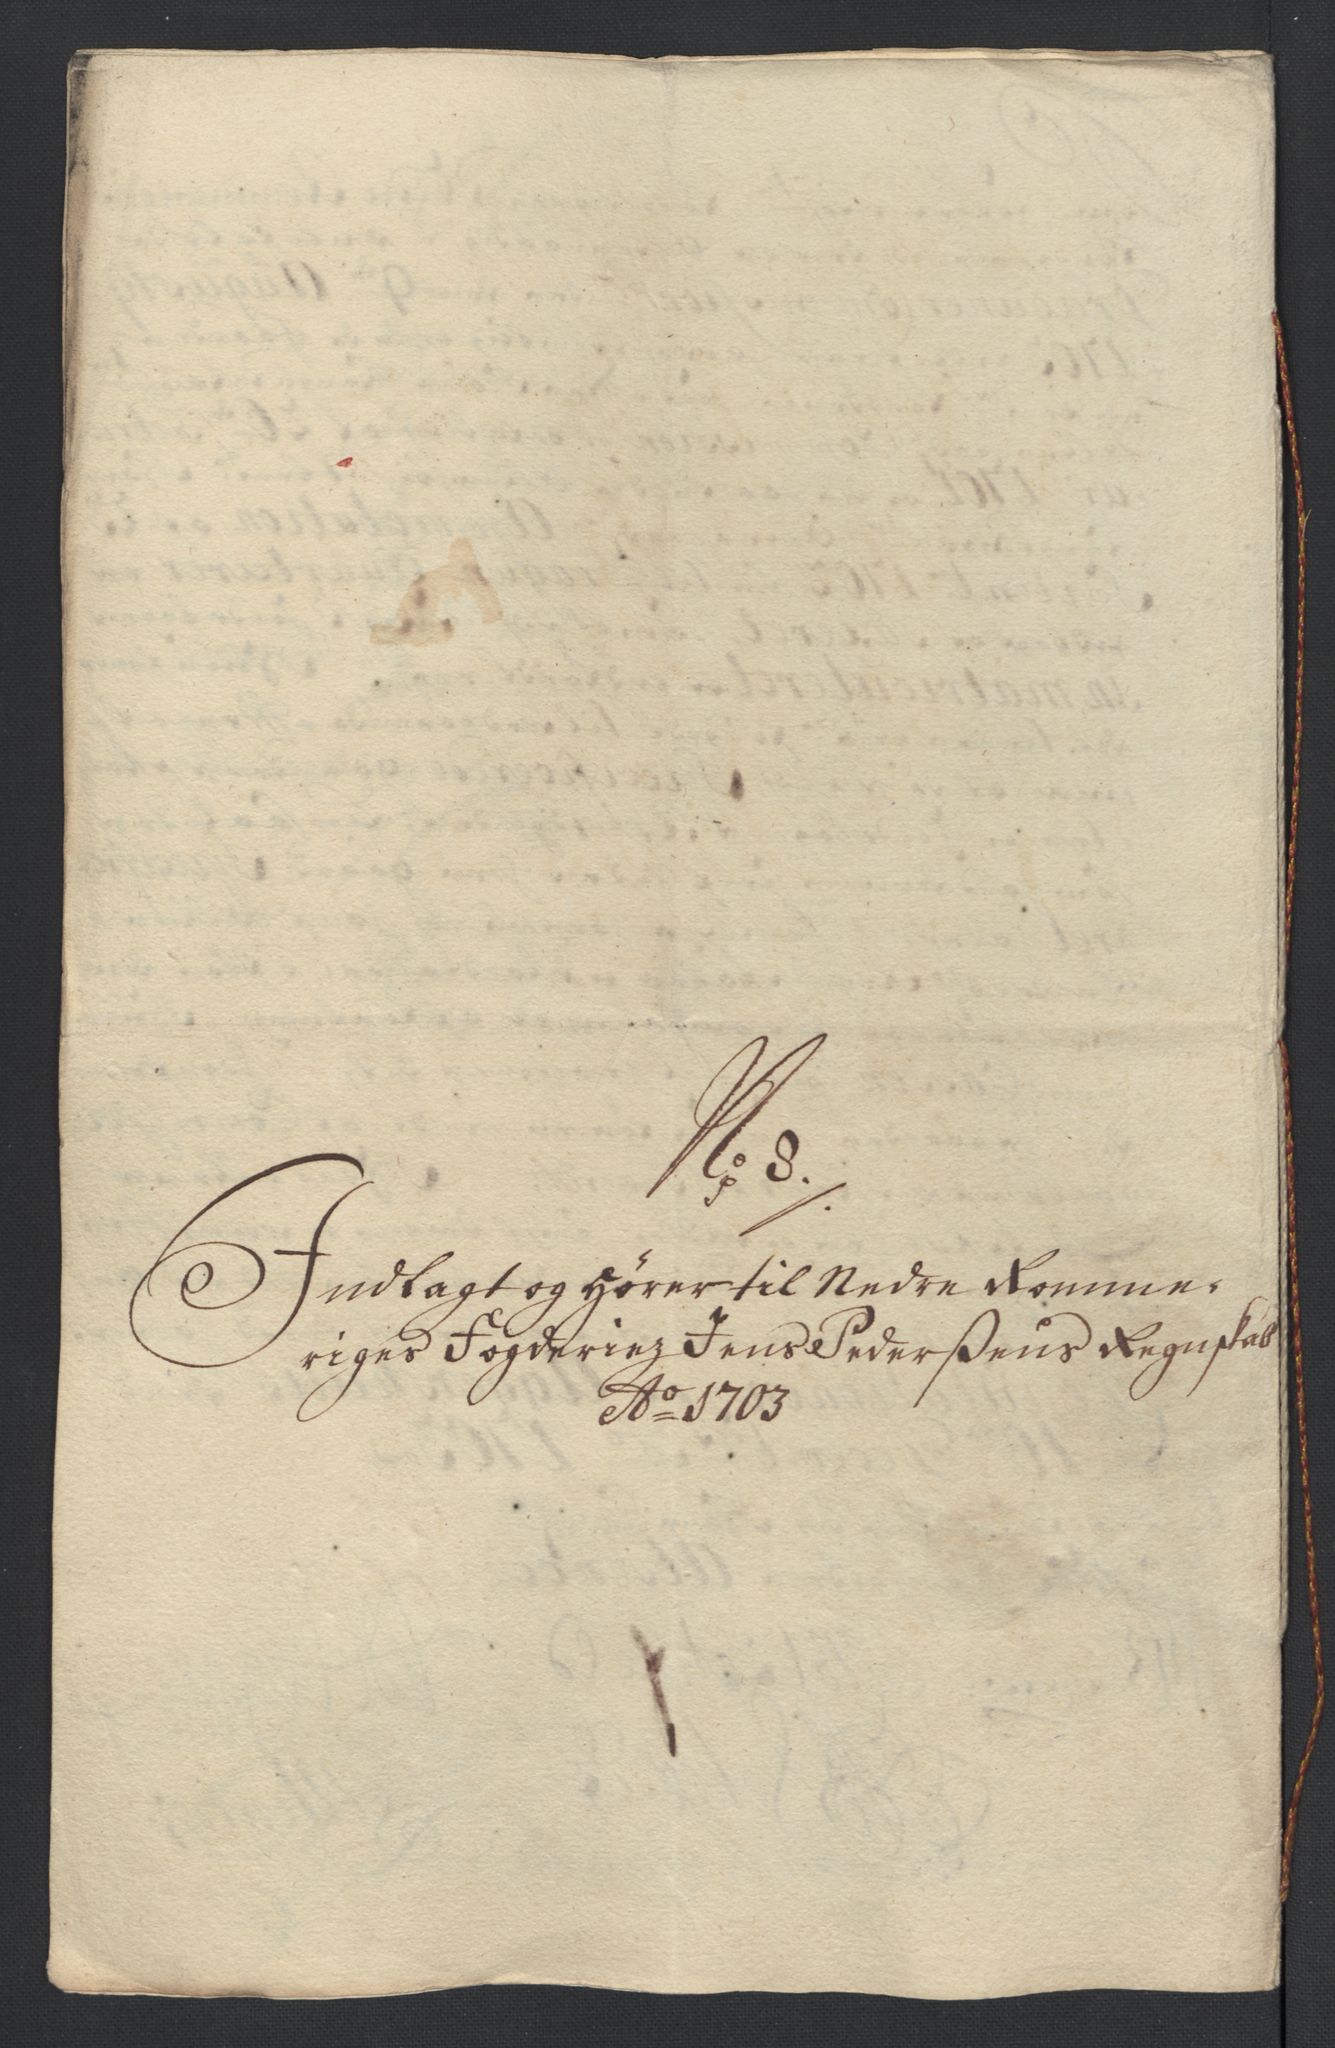 No 8.
Indlagt og Hører til Nedre Romme-
riges Fogderiez Jens Pederßens Regnskab
Ao 1703